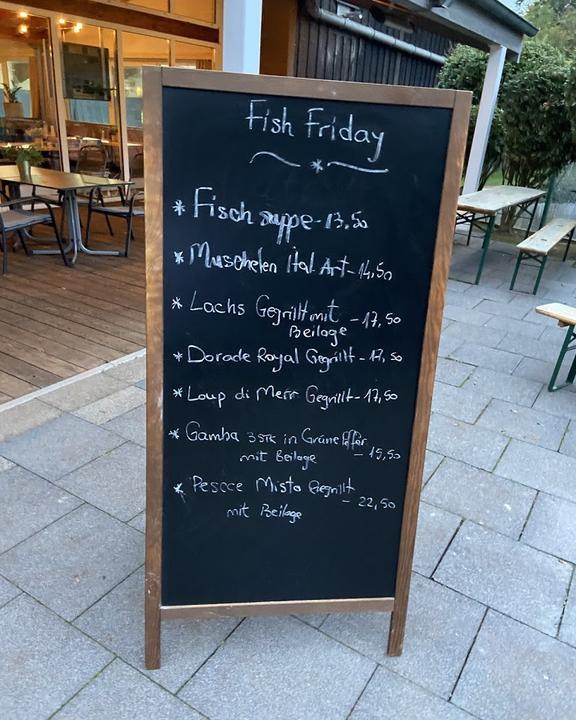 Fish Friday
* Fischsuppe - 13,50
* Muschelen Ital Art - 14,50
* Lachs Gegrillt mit - 17,50
Beilage
* Dorade Royal Gegrillt - 17,50
* Loup di Merr Gegrillt - 17,50
* Gamba 3 STK in Grüne Pffer
mit Beilage - 15,50
* Pescce Misto Gegrillt - 22,50
mit Beilage